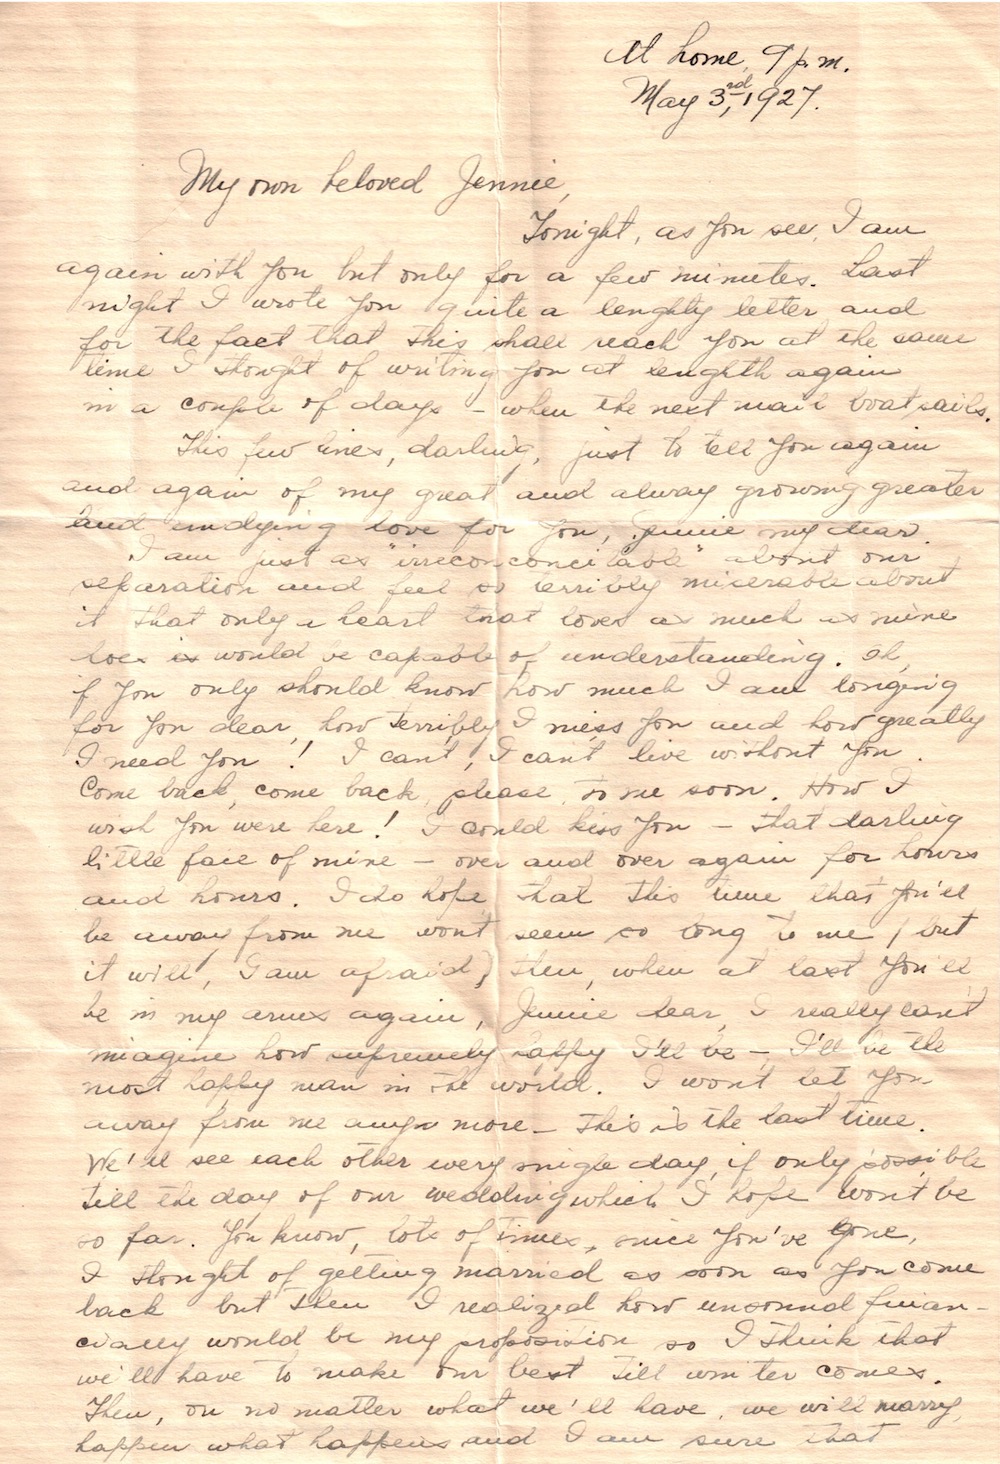 At home, 9 p.m.
May 3rd, 1927.
My own beloved Jennie,
Tonight, as You see, I am
again with You but only for a few minutes. Last
night I wrote You quite a lenghty letter and
for the fact that this shall reach You at the same
time I thought of writing You at lenghth again
in a couple of days – when the next mail boat sails.
This few lines, darling, just to tell You again
and again of my great and alway growing greater
and undying love for You, Jennie my dear.
I am just as "irreconconcilable" about our
separation and feel so terribly miserable about
it that only a heart that loves as much as mine
does is would be capable of understanding. Oh,
if You only should know how much I am longing
for You dear, how terribly I miss You and how greatly
I need You! I can't, I can't live without You.
Come back, come back, please, to me soon. How I
wish You were here! I could kiss You – that darling
little face of mine – over and over again for hours
and hours. I do hope that this time that You'll
be away from me won't seem so long to me (but
it will, I am afraid) then, when at last You'll
be in my arms again, Jennie dear, I really can't
imagine how supremely happy I'll be – I'll be the
most happy man in the world. I won't let You
away from me any more – this is the last time.
We'll see each other every single day, if only possible
till the day of our wedding which I hope won't be
so far. You know, lots of times, since You've gone,
I thought of getting married as soon as You come
back but then I realized how unsound finan-
cially would be my proposition so I think that
we'll have to make our best till winter comes.
Then, on no matter what we'll have, we will marry,
happen what happens and I am sure that